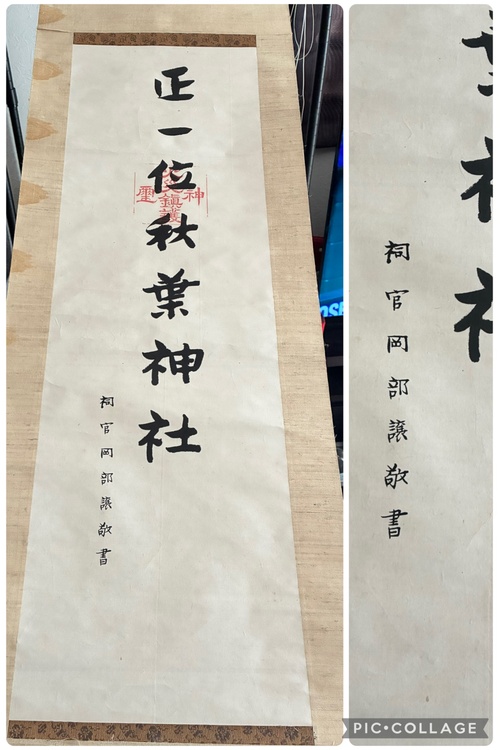 正一位秋葉神社
神
火災鎮護
璽
祠官岡部譲敬書
祠官岡部譲敬書
PIC•COLLAGE